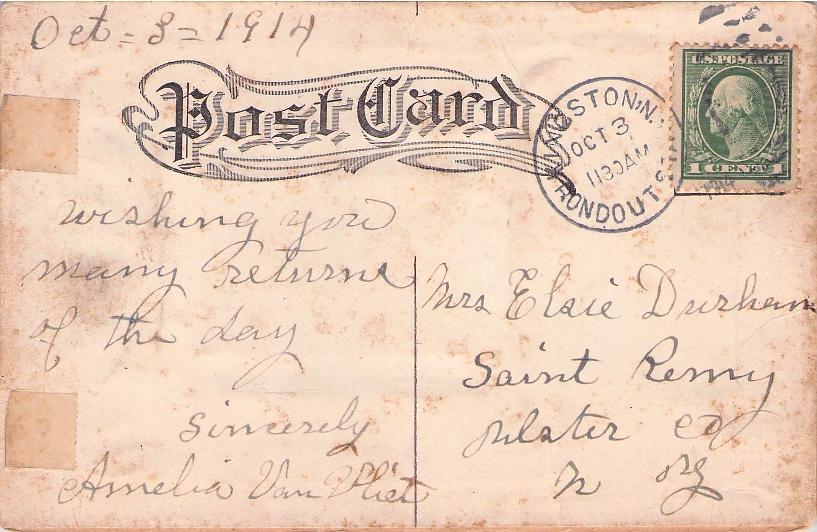 Oct = 3 = 1914
Post Card
U.S. POSTAGE
1 CENT 1
KINGSTON, N.Y.
OCT 3
1130AM
1914
RONDOUT STA
wishing you
many returns
of the day
sincerely
Amelia Van Vliet
Mrs Elsie Durham
Saint Remy
Ulster Co
N Y